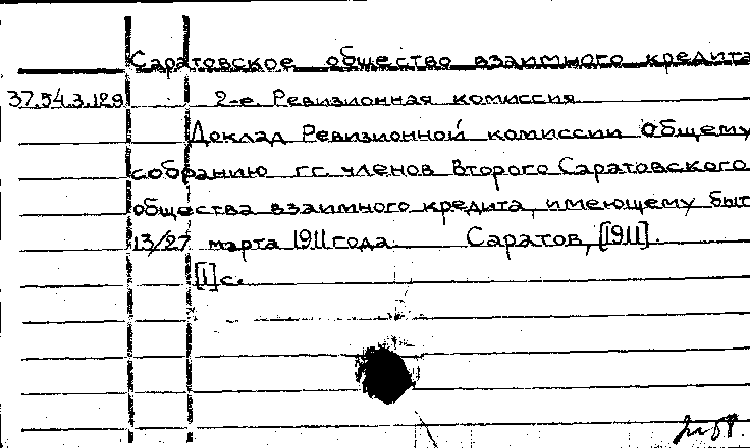 Саратовское общество взаимного кредита
37.54.3.129 2-е. Ревизионная комиссия
Доклад Ревизионной комиссии Общему
собранию г.г. членов Второго Саратовского
общества взаимного кредита, имеющему быт
13/27 марта 1911 года. Саратов, [1911].
[1] с.